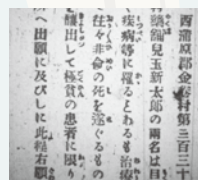 西蒲原郡金巻村第三百三十
村饒側兒玉新太郎の兩名は目
く疾病等に罹るとわるも治療
往々非命の死を遂ぐるもの
を醵出して極貧の患者に限り
所へ出願に及びしに此程右願